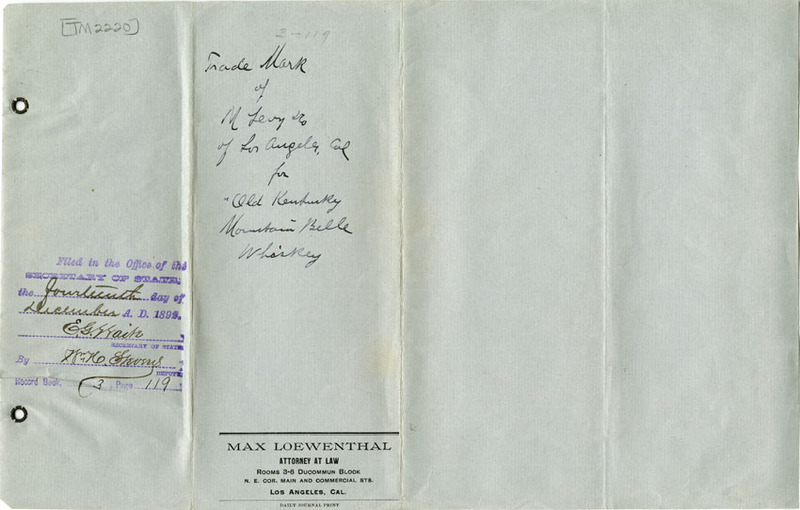 [TM2220]
3-119
Trade Mark
of
M Levy & Co
of Los Angeles, Cal
for
"Old Kentucky
Mountain Belle
Whiskey
Filed in the Office of the
SECRETARY OF STATE,
the fourteenth day of
December A. D. 1899.
SECRETARY OF STATE
By Wm H.
DEPUTY
Record Book, 3 Page 119
MAX LOEWENTHAL
ATTORNEY AT LAW
ROOMS 3-6 DUCOMMUN BLOCK
N. E. COR. MAIN AND COMMERCIAL STS.
LOS ANGELES, CAL.
DAILY JOURNAL PRINT